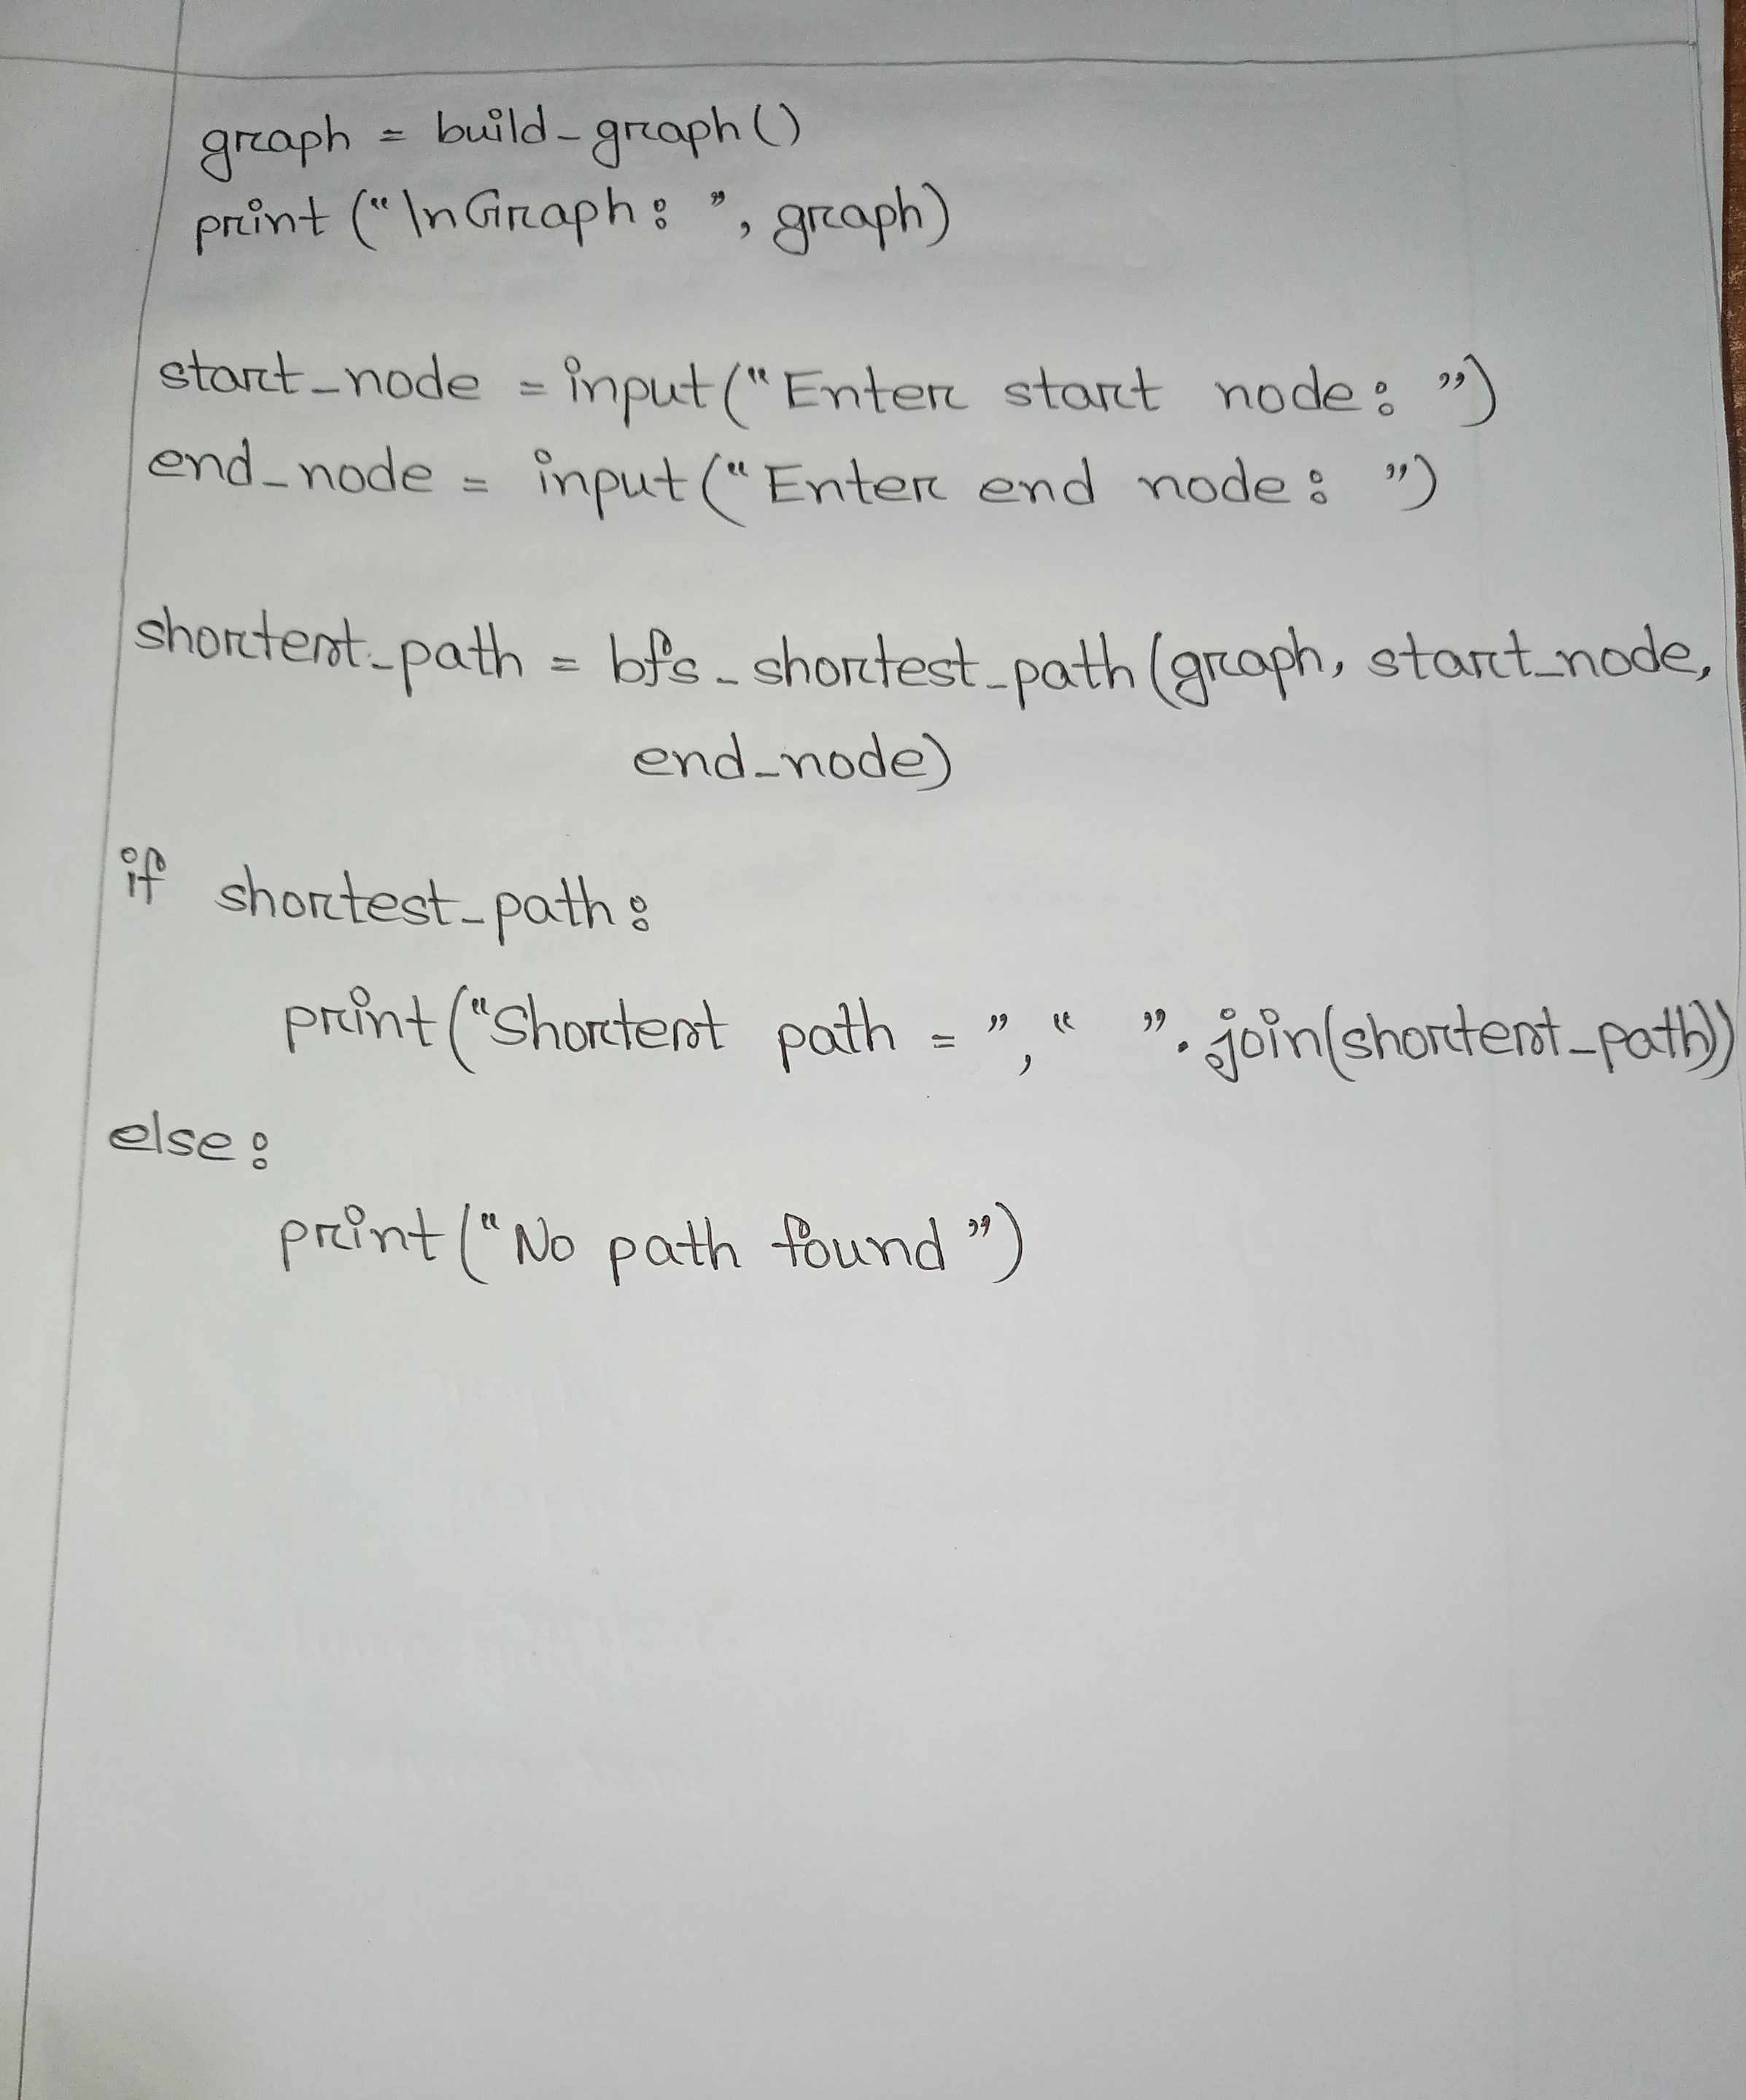 graph = build_graph()
print("\nGraph: ", graph)
start_node = input("Enter start node: ")
end_node = input("Enter end node: ")
shortest_path = bfs_shortest_path(graph, start_node,
end_node)
if shortest_path:
print("Shortest path = ", " ".join(shortest_path))
else:
print("No path found")